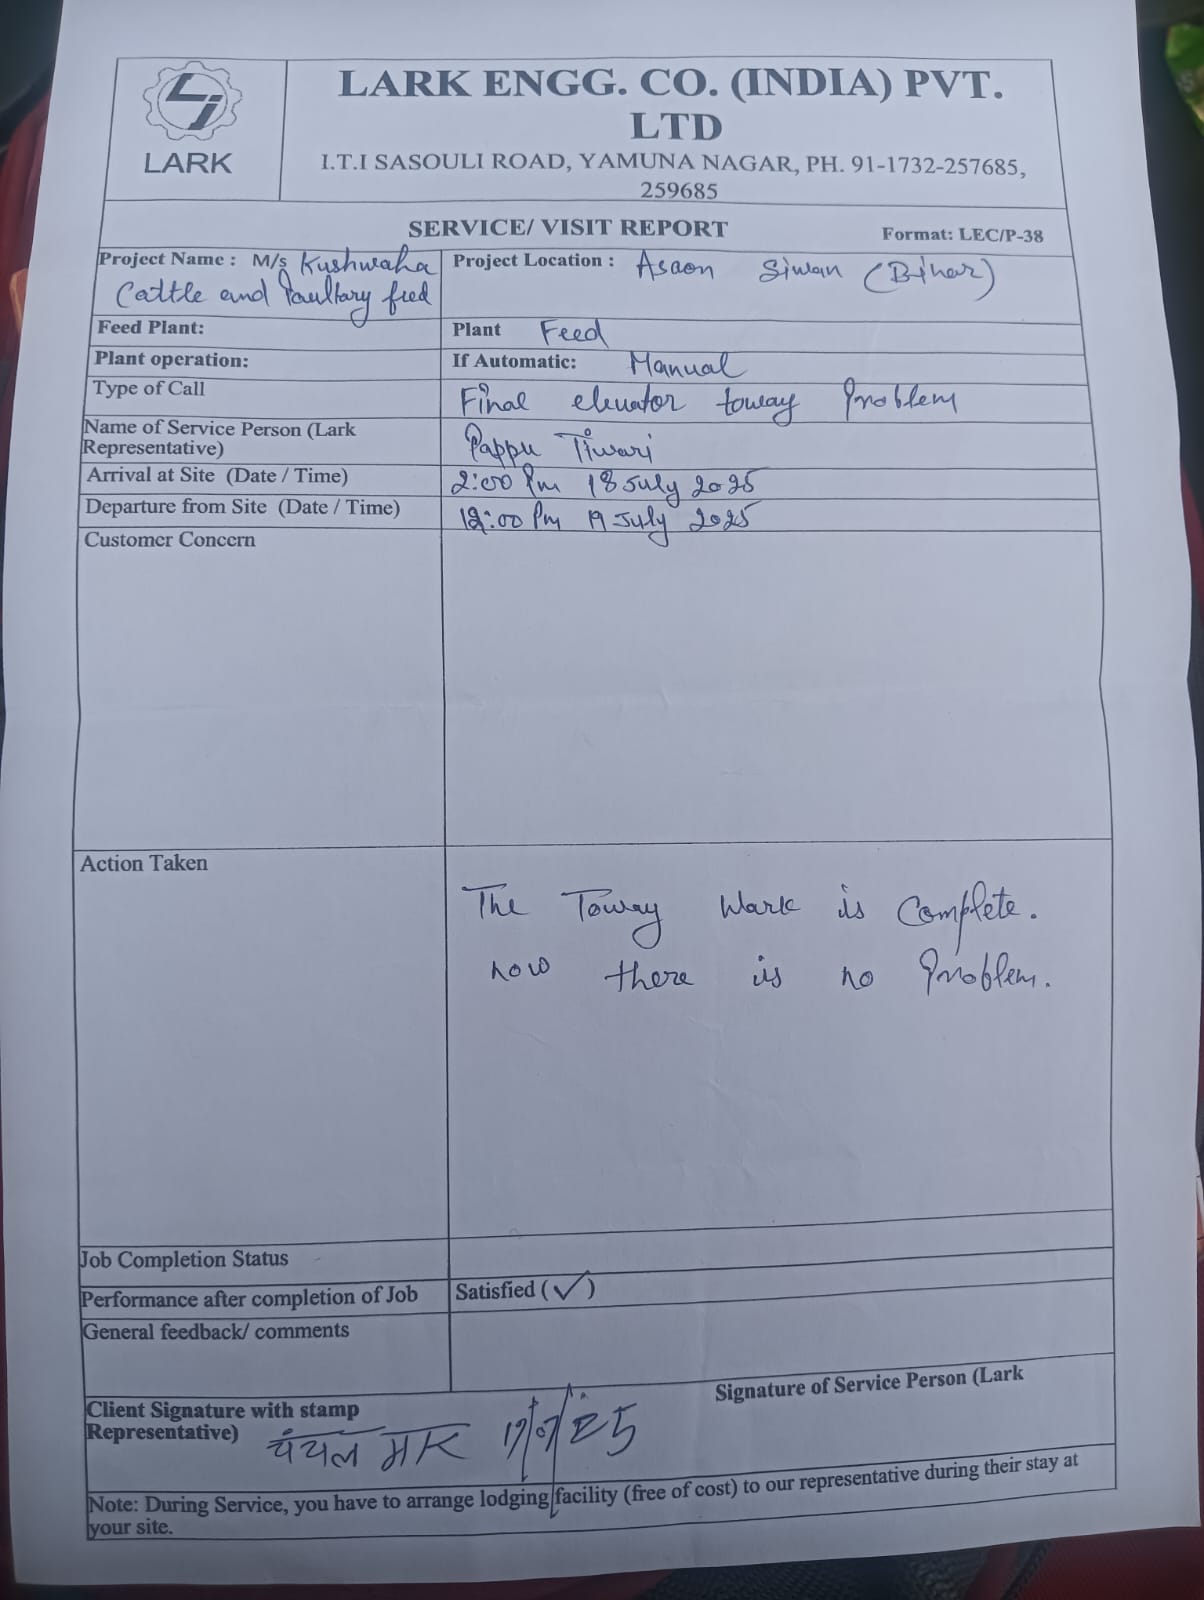 LARK
LARK ENGG. CO. (INDIA) PVT.
LTD
I.T.I SASOULI ROAD, YAMUNA NAGAR, PH. 91-1732-257685,
259685
SERVICE/ VISIT REPORT
Format: LEC/P-38
Project Name : M/s Kushwaha
Cattle and Paultary feed
Project Location : Asaon Siwan (Bihar)
Feed Plant:
Plant Feed
Plant operation:
If Automatic: Manual
Type of Call
Final elevator toway Problem
Name of Service Person (Lark
Representative)
Pappu Tiwari
Arrival at Site (Date / Time)
2:00 Pm 18 July 2025
Departure from Site (Date / Time)
12:00 Pm 19 July 2025
Customer Concern
Action Taken
The Toway Wark is Complete.
now there is no Problem.
Job Completion Status
Performance after completion of Job
Satisfied (✓)
General feedback/ comments
Signature of Service Person (Lark
Client Signature with stamp
Representative)
Note: During Service, you have to arrange lodging facility (free of cost) to our representative during their stay at
your site.